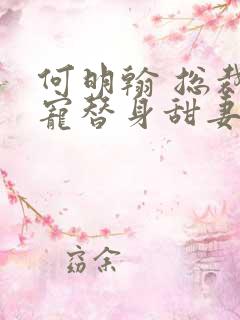 何明翰 总裁
宠替身甜妻
窈余